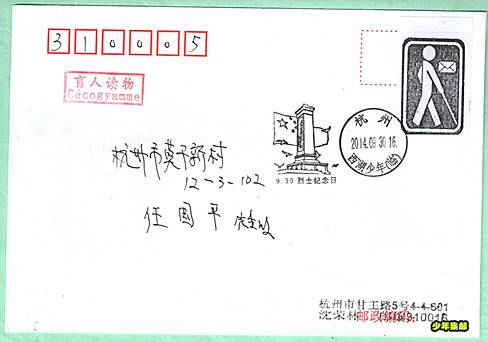 310005
盲人读物
Cécogramme
杭州
2014.09.30.16.
西湖少年(临)
9.30 烈士纪念日
杭州市莫干新村
12-3-102
任国平
杭州市甘王路5号4-4-601
沈荣林
邮政编码:310016
少年集邮